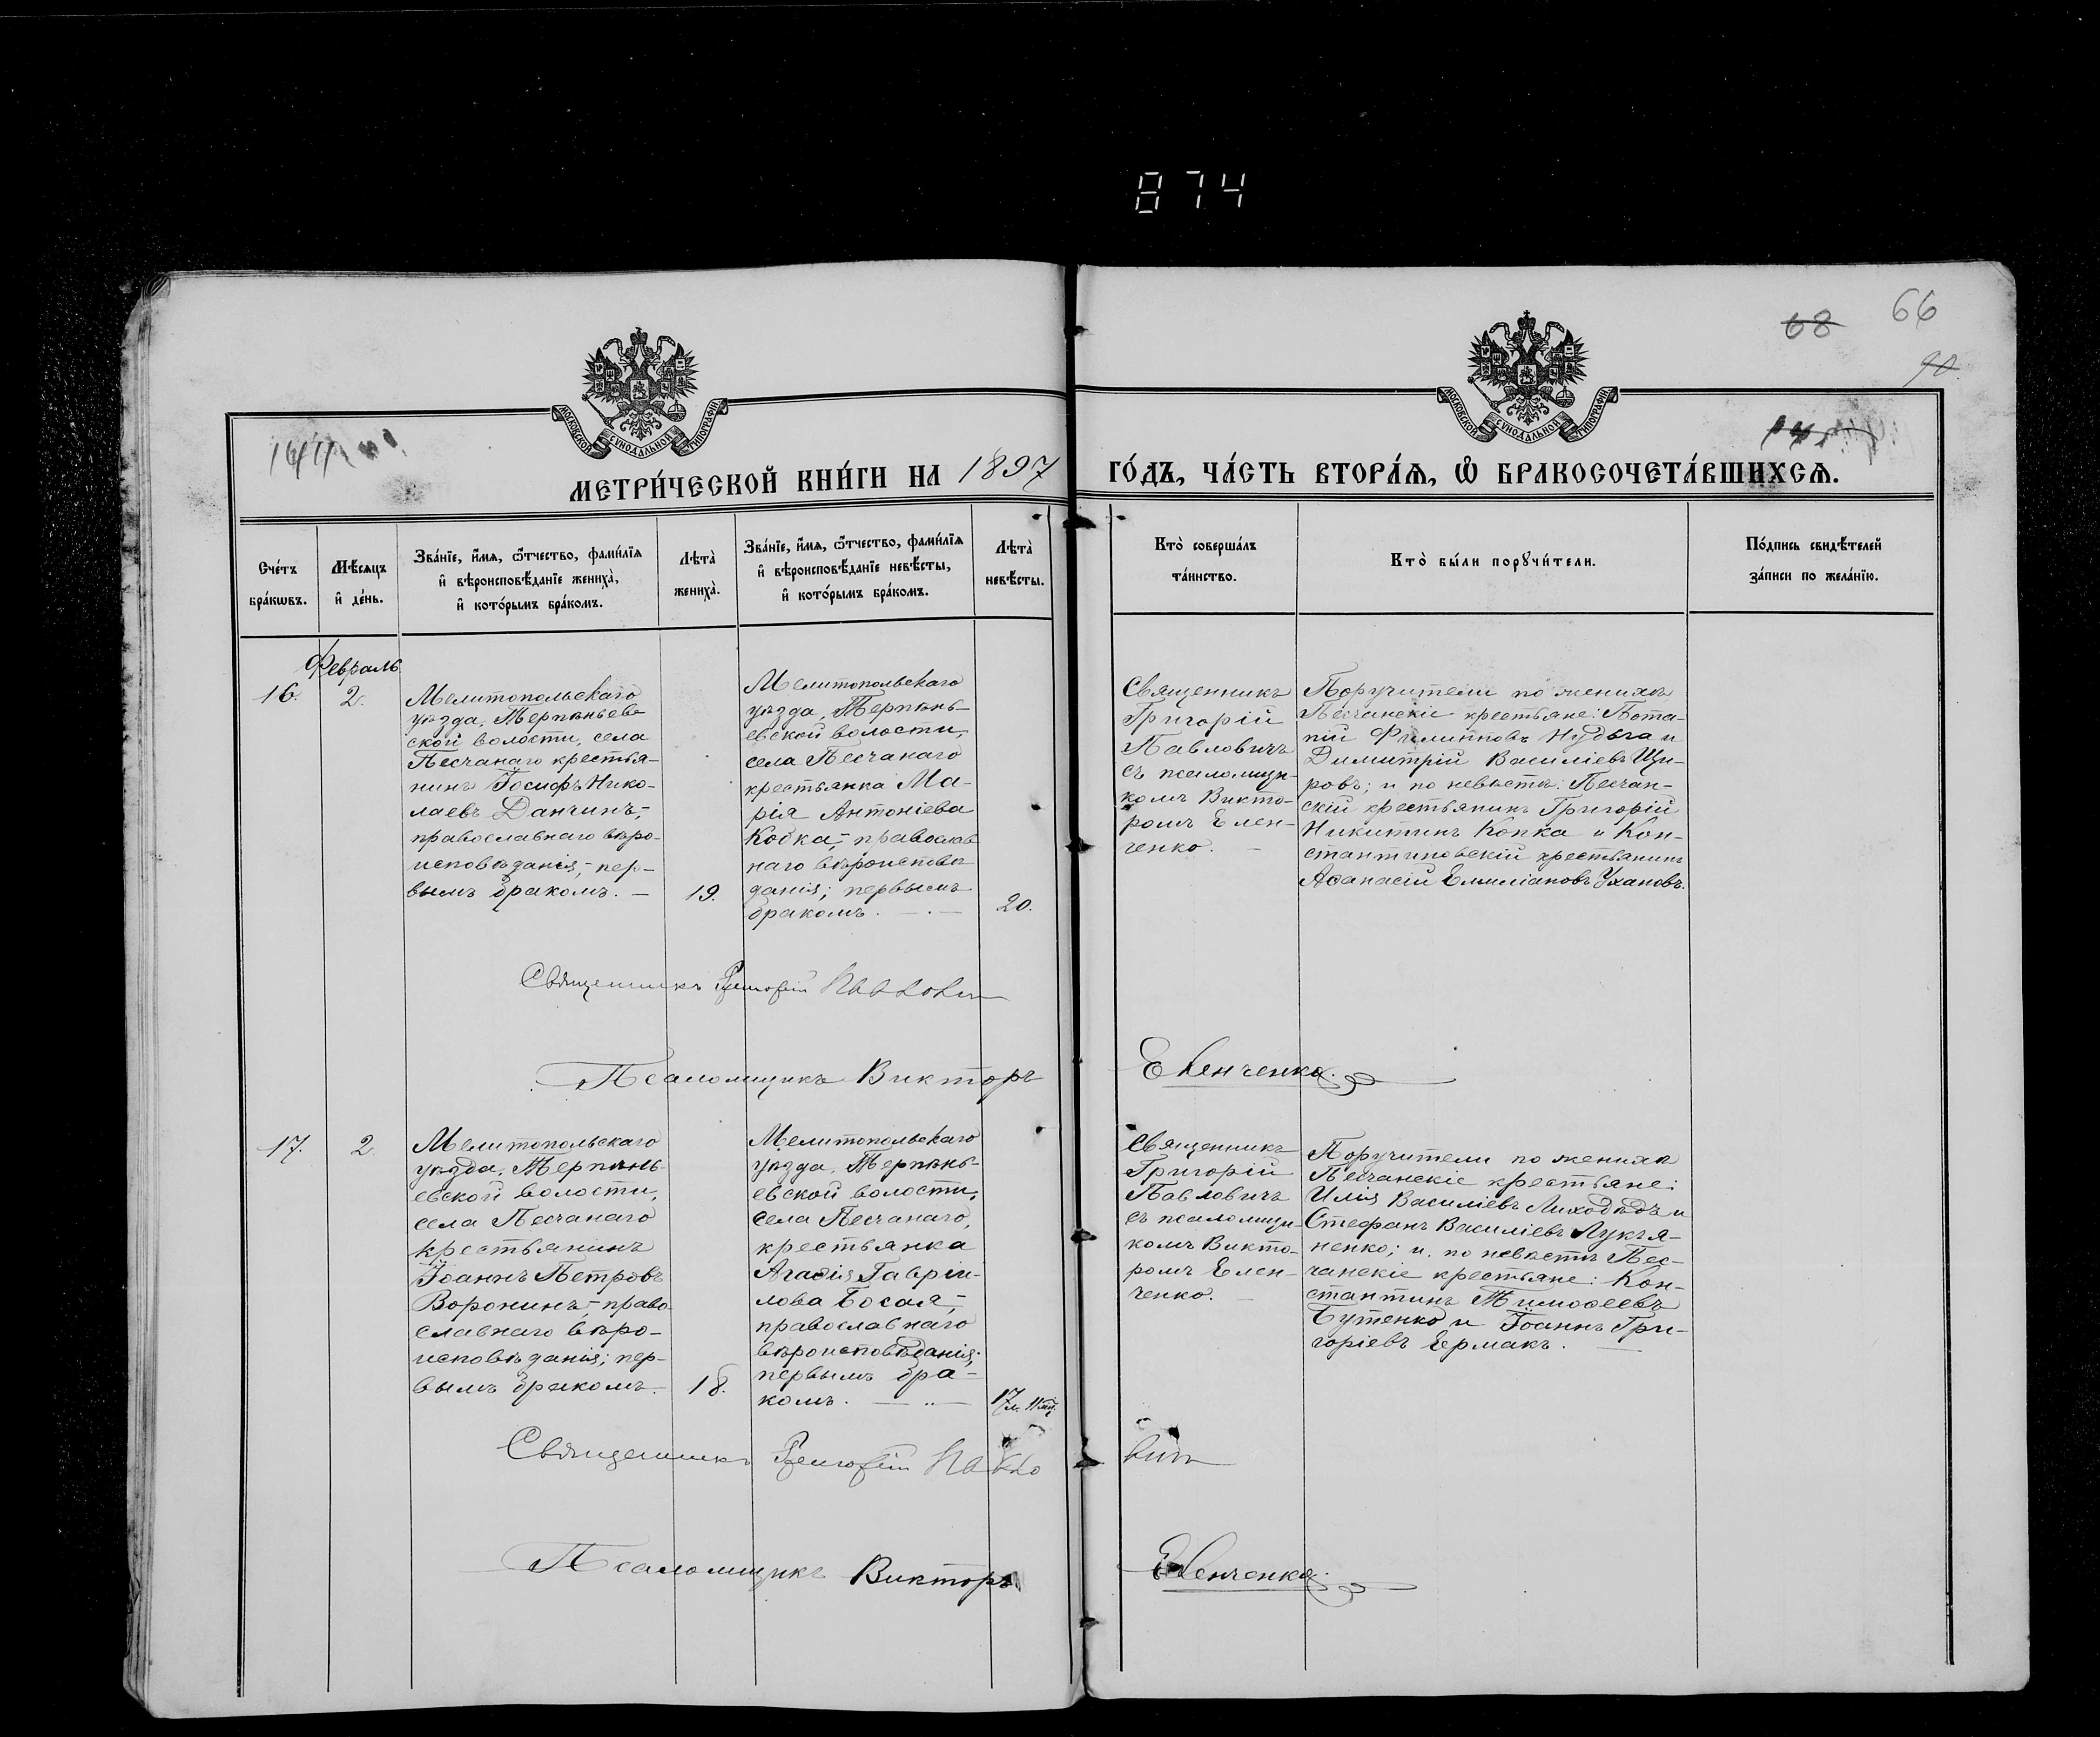 874
66
68
90.
МОСКОВСКОЙ СѴНОДАЛЬНОЙ ТИПОГРАФІИ
МОСКОВСКОЙ СѴНОДАЛЬНОЙ ТИПОГРАФІИ
МЕТРИ́ЧЕСКОЙ КНИ́ГИ НА 1897 ГО́ДЪ, ЧА́СТЬ ВТОРА́Ѧ, Ѡ҆ БРАКОСОЧЕТА́ВШИХСѦ.
Сче́тъ
бра́кѡвъ.
Мѣ́сѧцъ
и҆ де́нь.
Зва́нїе, и҆́мѧ, ѻ҆́тчество, фами́лїѧ
и҆ вѣроисповѣ́данїе жениха̀,
и҆ кото́рымъ бра́комъ.
Лѣта̀
жениха̀.
Зва́нїе, и҆́мѧ, ѻ҆́тчество, фами́лїѧ
и҆ вѣроисповѣ́данїе невѣ́сты,
и҆ кото́рымъ бра́комъ.
Лѣта̀
невѣ́сты.
Кто̀ соверша́лъ
та́инство.
Кто̀ бы́ли порꙋчи́тели.
По́дпись свидѣ́телей
за́писи по жела́нїю.
Февраль
16.
2.
Мелитопольскаго
уѣзда, Терпѣньев-
ской волости, села
Песчанаго крестья-
нинъ Іосифъ Нико-
лаевъ Данчинъ,-
православнаго вѣро-
исповѣданія,- пер-
вымъ бракомъ. —
19.
Мелитопольскаго
уѣзда, Терпѣнь-
евской волости,
села Песчанаго
крестьянка Ма-
рія Антоніева
Кобка,- православ
наго вѣроисповѣ
данія; первымъ
бракомъ. — . —
20.
Священникъ
Григорій
Павловичъ
съ псаломщи-
комъ Викто-
ромъ Елен-
ченко. —
Поручители по женихѣ
Песчанскіе крестьяне: Пота-
пій Филипповъ Нудьга и
Димитрій Василіевъ Щи-
ровъ; и по невѣстѣ: Песчан-
скій крестьянинъ Григорій
Никитинъ Копка и Кон-
стантиновскій крестьянинъ
Аѳанасій Емиліановъ Ухановъ.
Священникъ Григорій Павлович
Псаломщикъ Викторъ Еленченко.
17.
2.
Мелитопольскаго
уѣзда, Терпѣнь-
евской волости,
села Песчанаго
крестьянинъ
Іоаннъ Петровъ
Воронинъ,- право
славнаго вѣро-
исповѣданія; пер-
вымъ бракомъ.-
18.
Мелитопольскаго
уѣзда, Терпѣнь-
евской волости,
села Песчанаго,
крестьянка
Агаѳія Гавріи-
лова Босая,-
православнаго
вѣроисповѣданія;
первымъ бра-
комъ. — .. —
17
л. 11 мц.
Священникъ
Григорій
Павловичъ
съ псаломщи-
комъ Викто-
ромъ Елен-
ченко. —
Поручители по женихѣ
Песчанскіе крестьяне:
Илія Василіевъ Лиходѣдъ и
Стефанъ Василіевъ Лукъя-
ненко; и по невѣстѣ Пес-
чанскіе крестьяне: Кон-
стантинъ Тимоѳеевъ
Бутенко и Іоаннъ Гри-
горіевъ Ермакъ. —
Священникъ Григорій Павло вичъ
Псаломщикъ Викторъ Еленченко.